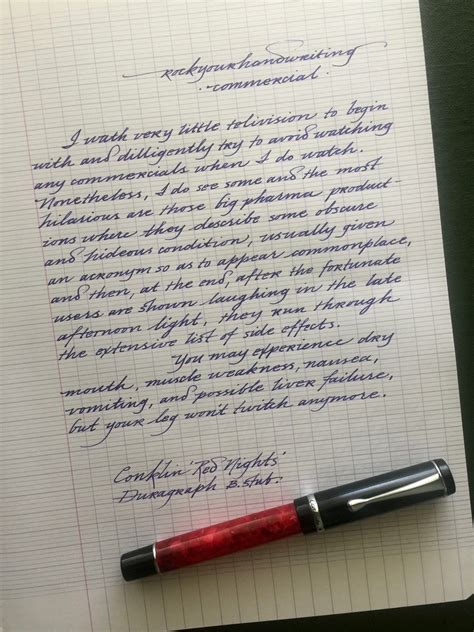 rockyourhandwriting
· commercial ·
I wath very little television to begin
with and dilligently try to avoid watching
any commercials when I do watch.
Nonetheless, I do see some and the most
hilarious are those big pharma product-
ions where they describe some obscure
and hideous condition, usually given
an acronym so as to appear commonplace,
and then, at the end, after the fortunate
users are shown laughing in the late
afternoon light, they run through
the extensive list of side effects.
You may experience dry
mouth, muscle weakness, nausea,
vomiting, and possible liver failure,
but your leg won't twitch anymore.
Conklin 'Red Nights'
Duragraph B. Stub.